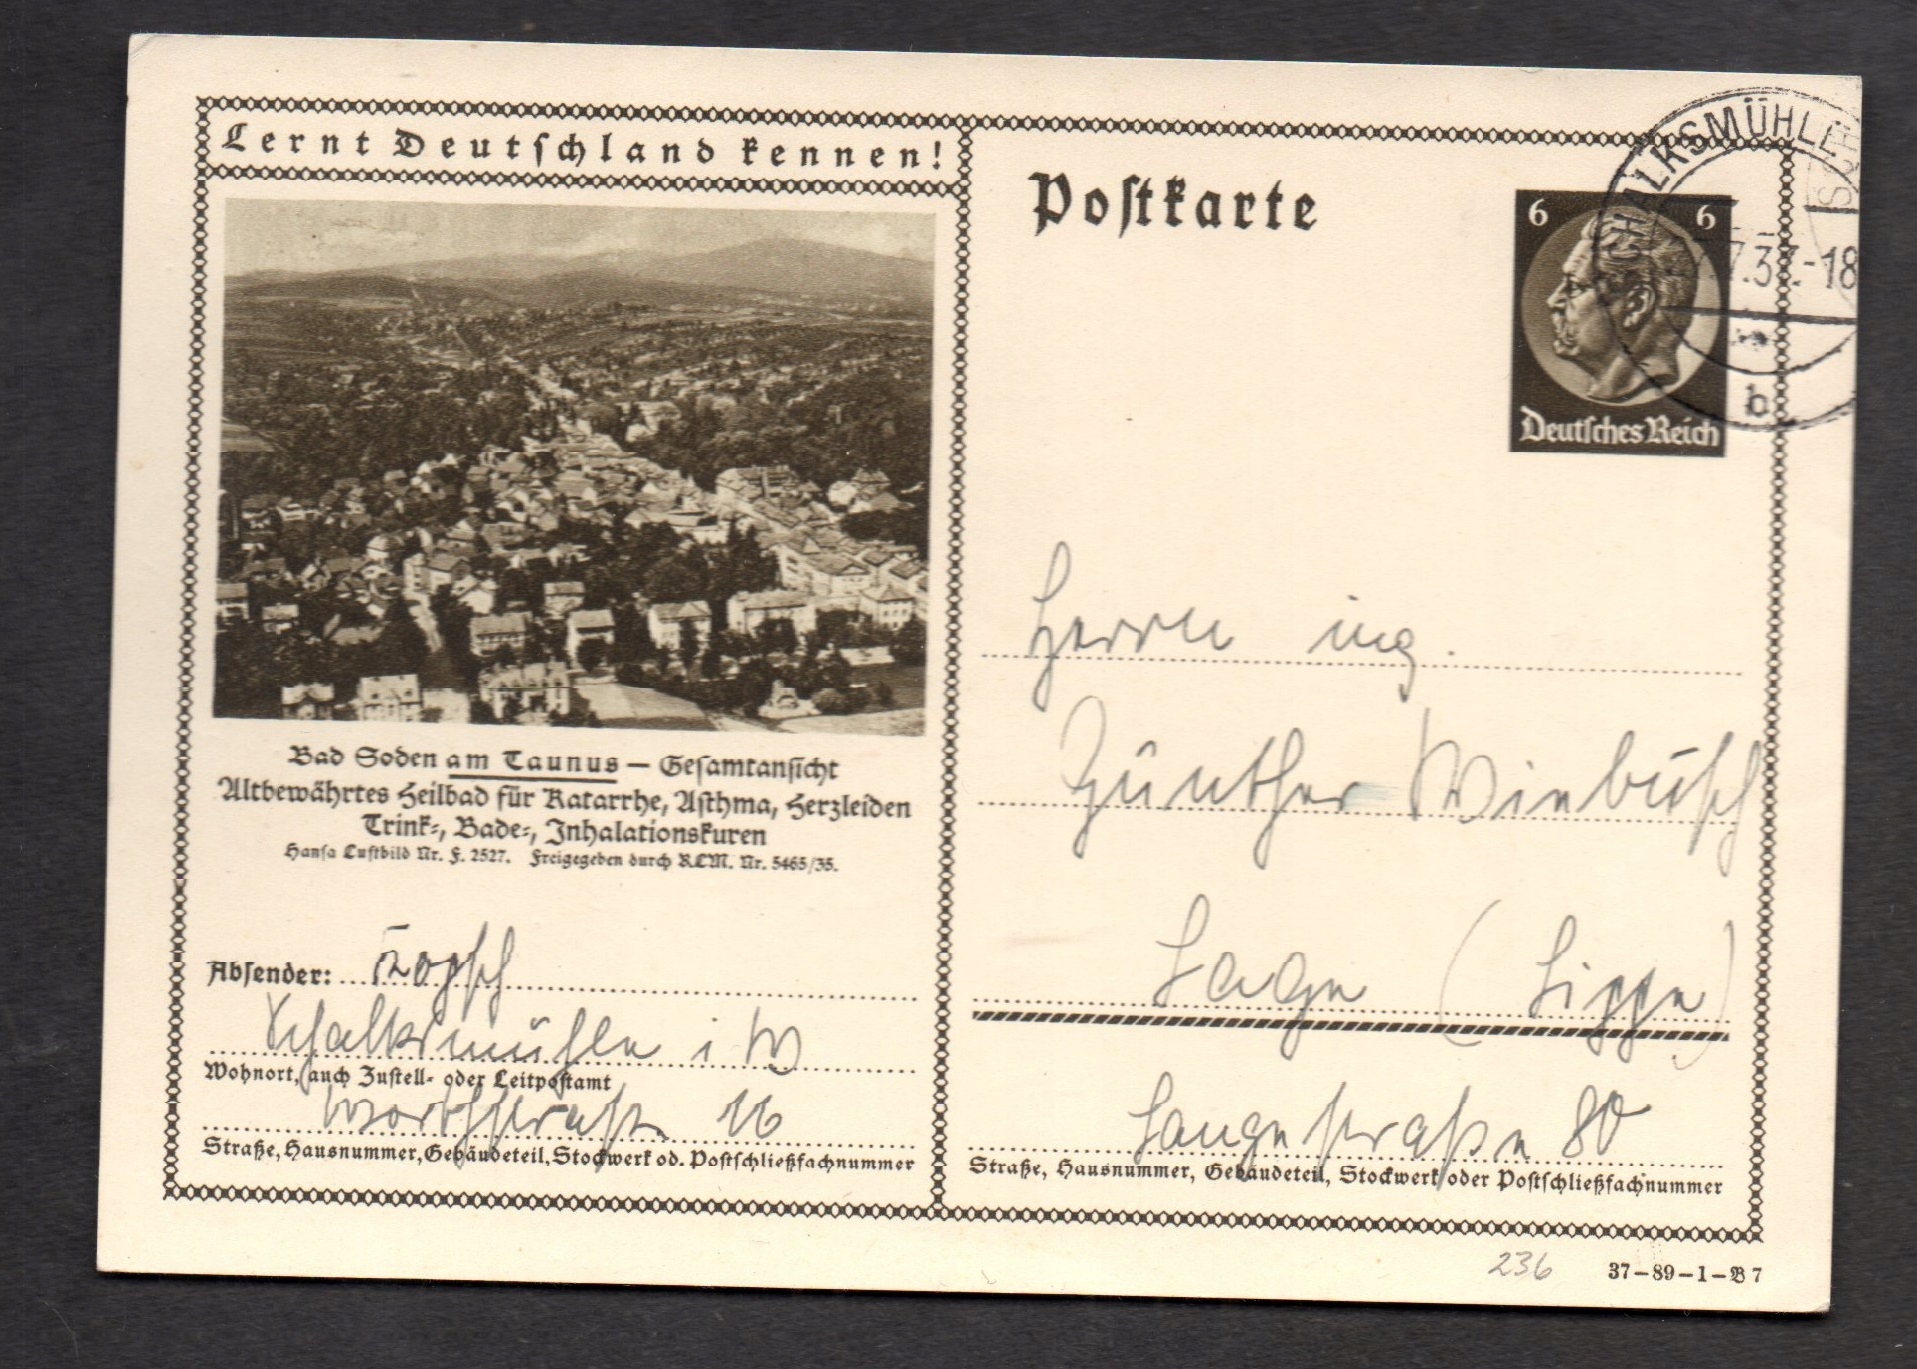 Lernt Deutschland kennen!
Bad Soden am Taunus – Gesamtansicht
Altbewährtes Heilbad für Katarrhe, Asthma, Herzleiden
Trink-, Bade-, Inhalationskuren
Hansa Luftbild Nr. F. 2527. Freigegeben durch RLM. Nr. 5465/35.
Absender:
Schalksmühle i W
Wohnort, auch Zustell- oder Leitpostamt
16
Straße, Hausnummer, Gebäudeteil, Stockwerk od. Postschließfachnummer
Postkarte
6 6
Deutsches Reich
HALKSMÜHLE
7.37.-18
b
Herrn Ing.
Günther Winbusch
Lage (Lippe)
Langestraße 80
Straße, Hausnummer, Gebäudeteil, Stockwerk oder Postschließfachnummer
236
37–89–1–B 7